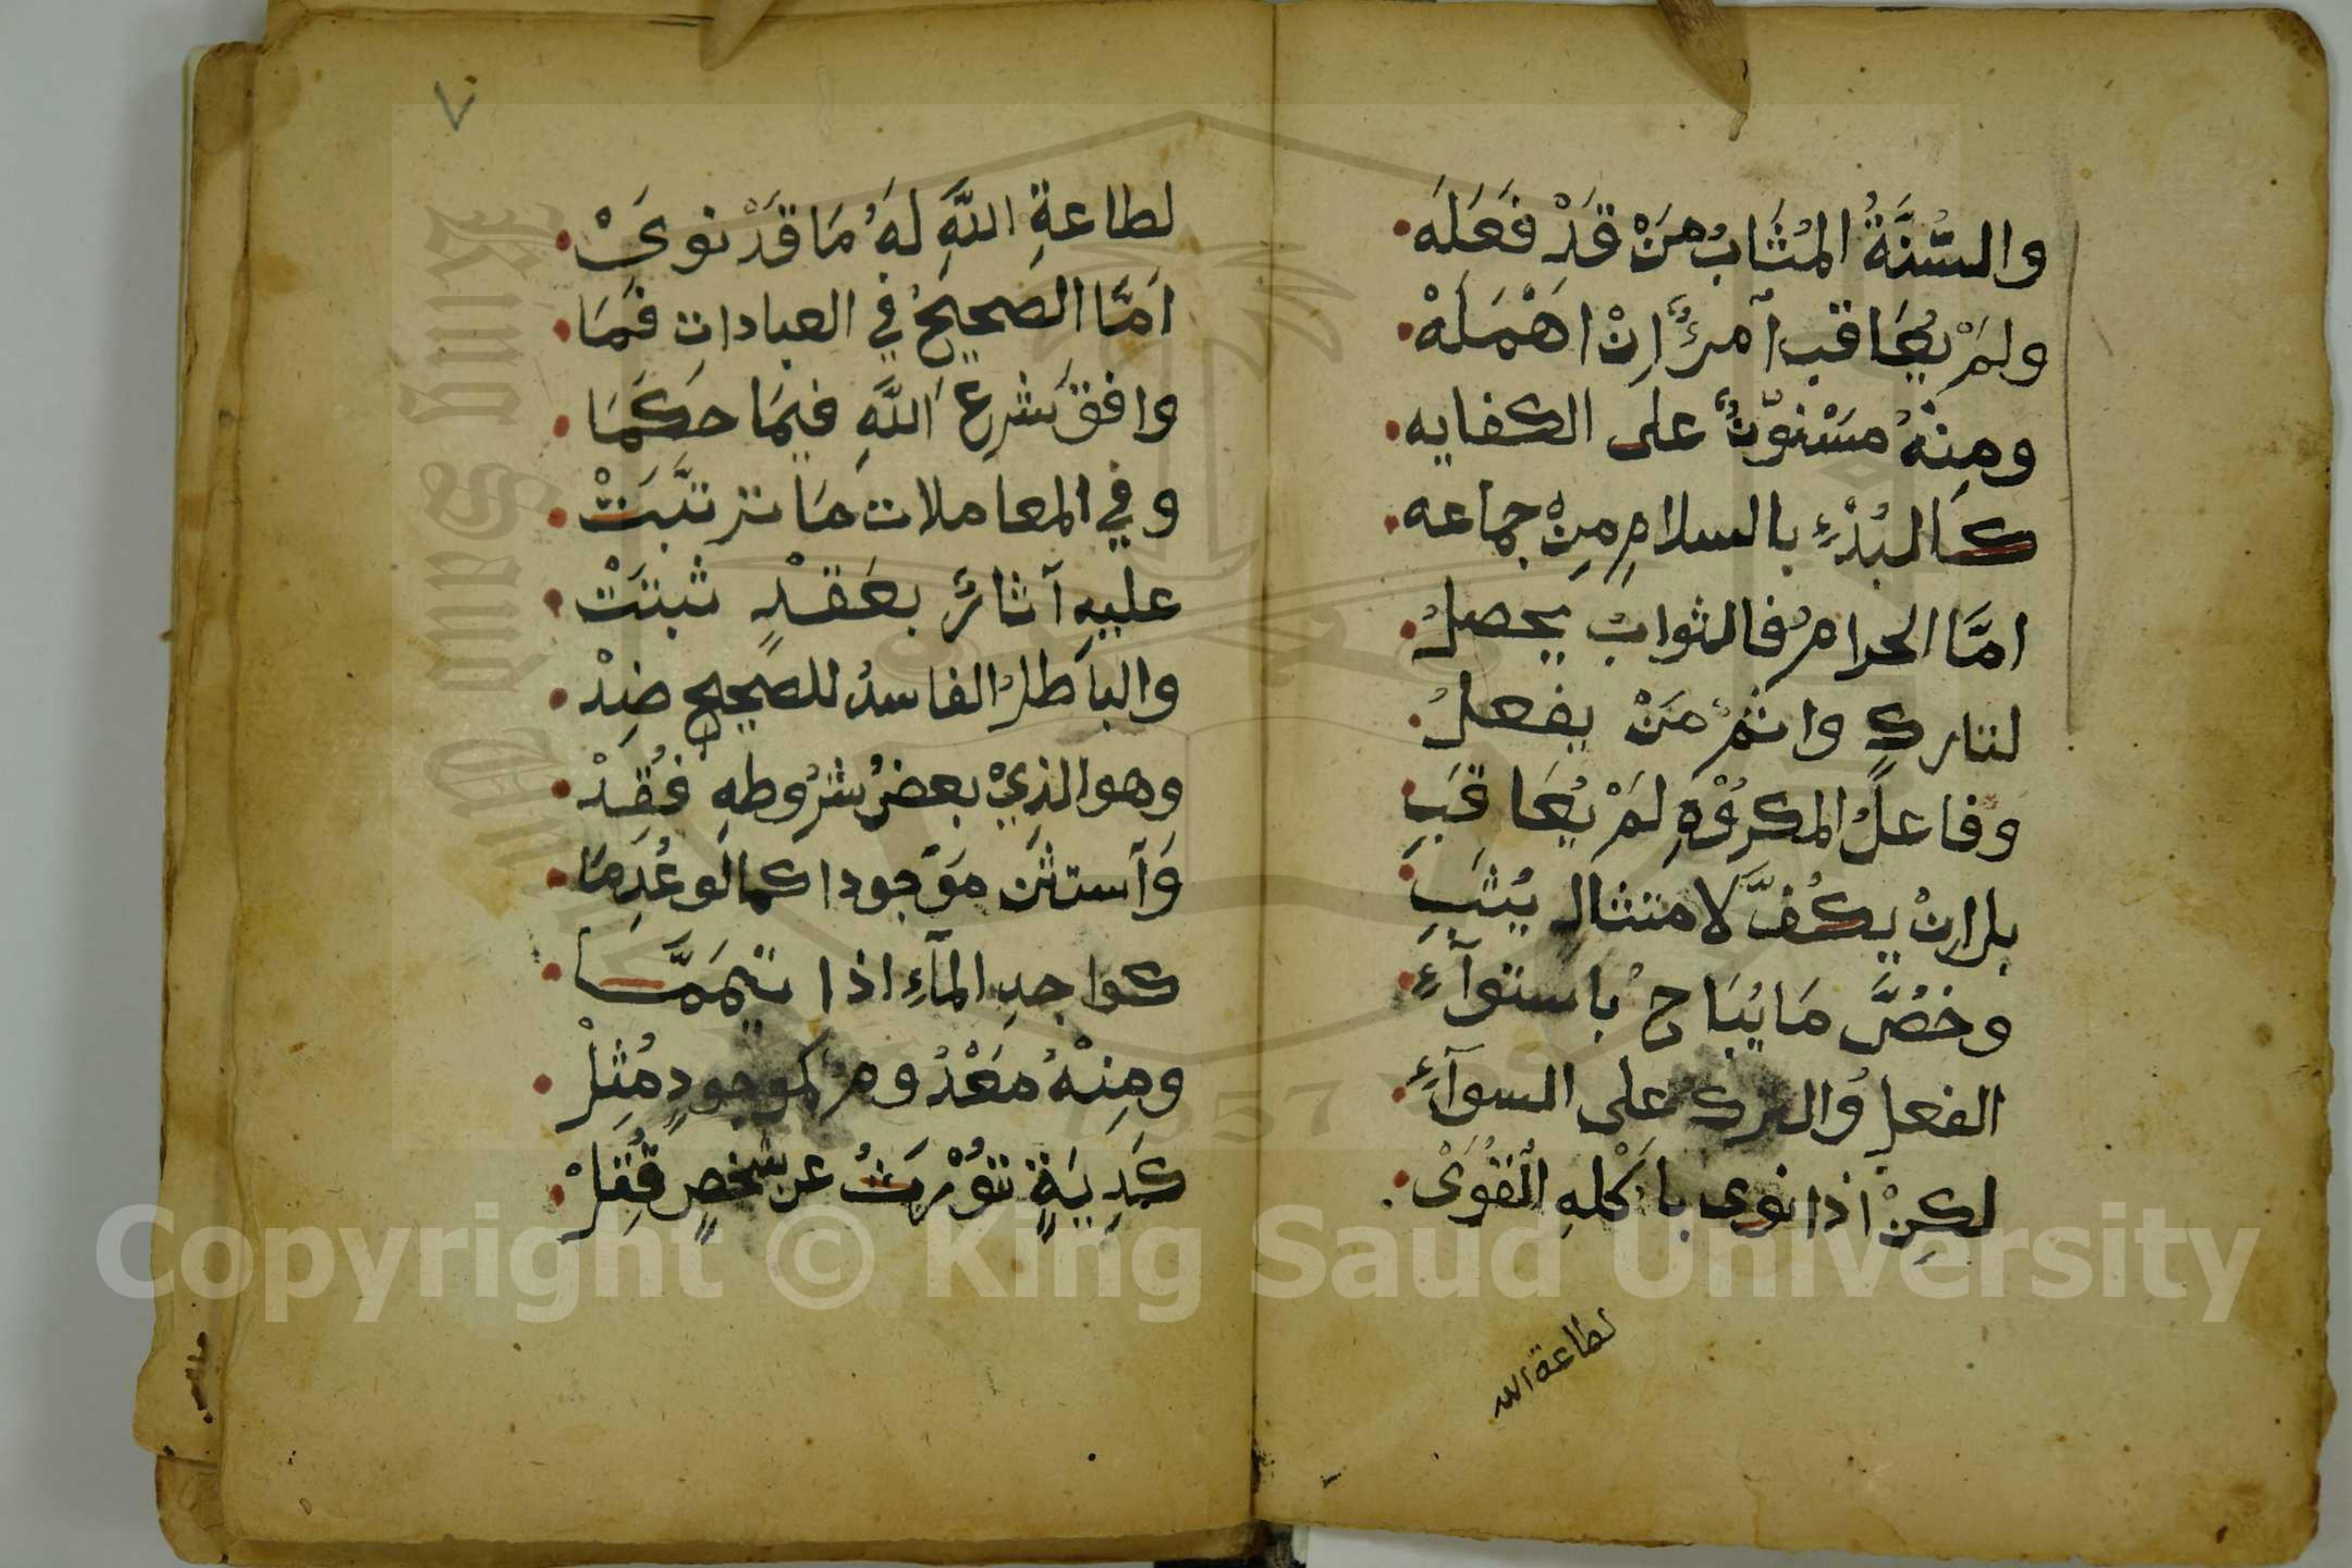 والسُّنَّةُ المُثَابُ مَنْ قَدْ فَعَلَهْ
ولَمْ يُعَاقب آمرُؤٌ اِنْ اَهْمَلَهْ
ومِنْهُ مَسْنُوْنٌ على الكفايه
كَالبُدْءِ بالسلامِ مِنْ جماعه
امَّا الحرامُ فالثوابُ يحصلُ
لتاركٍ واثمُ مَنْ يفعلُ
وفاعلُ المكرُوْهِ لَمْ يُعَاقَبِ
بل اِنْ يَكُفَّ لامتثالٍ يُثَبِ
وخُصَّ مَا يُبَاحُ باستوآءِ
الفعلِ والتركِ على السوآءِ
لكِنْ اذا نوى باكْلهِ القُوَىْ
لطاعة الله
٧
لطاعةِ اللّهِ لَهُ مَا قَدْ نوىَ
اَمَّا الصحيحُ في العباداتِ فَمَا
وافقَ شرعَ اللّهِ فيمَا حَكَمَا
وفي المعاملات مَا ترتَّبَتْ
عليهِ آثارٌ بعَقْدٍ ثبتَتْ
والباطلُ الفاسدُ للصحيحِ ضِدْ
وهو الذِيْ بعضُ شُرُوطهِ فُقِدْ
وَآستثن مَوْجودا كما لو عُدِمَا
كواجدِ المآءِ اذا تيمَمَّا
ومِنْهُ مَعْدُومٌ كموجودٍ مُثِلْ
كَدِيَةٍ تُوْرَثُ عن شخصٍ قُتِلْ
Copyright © King Saud University
King Saud University
1957